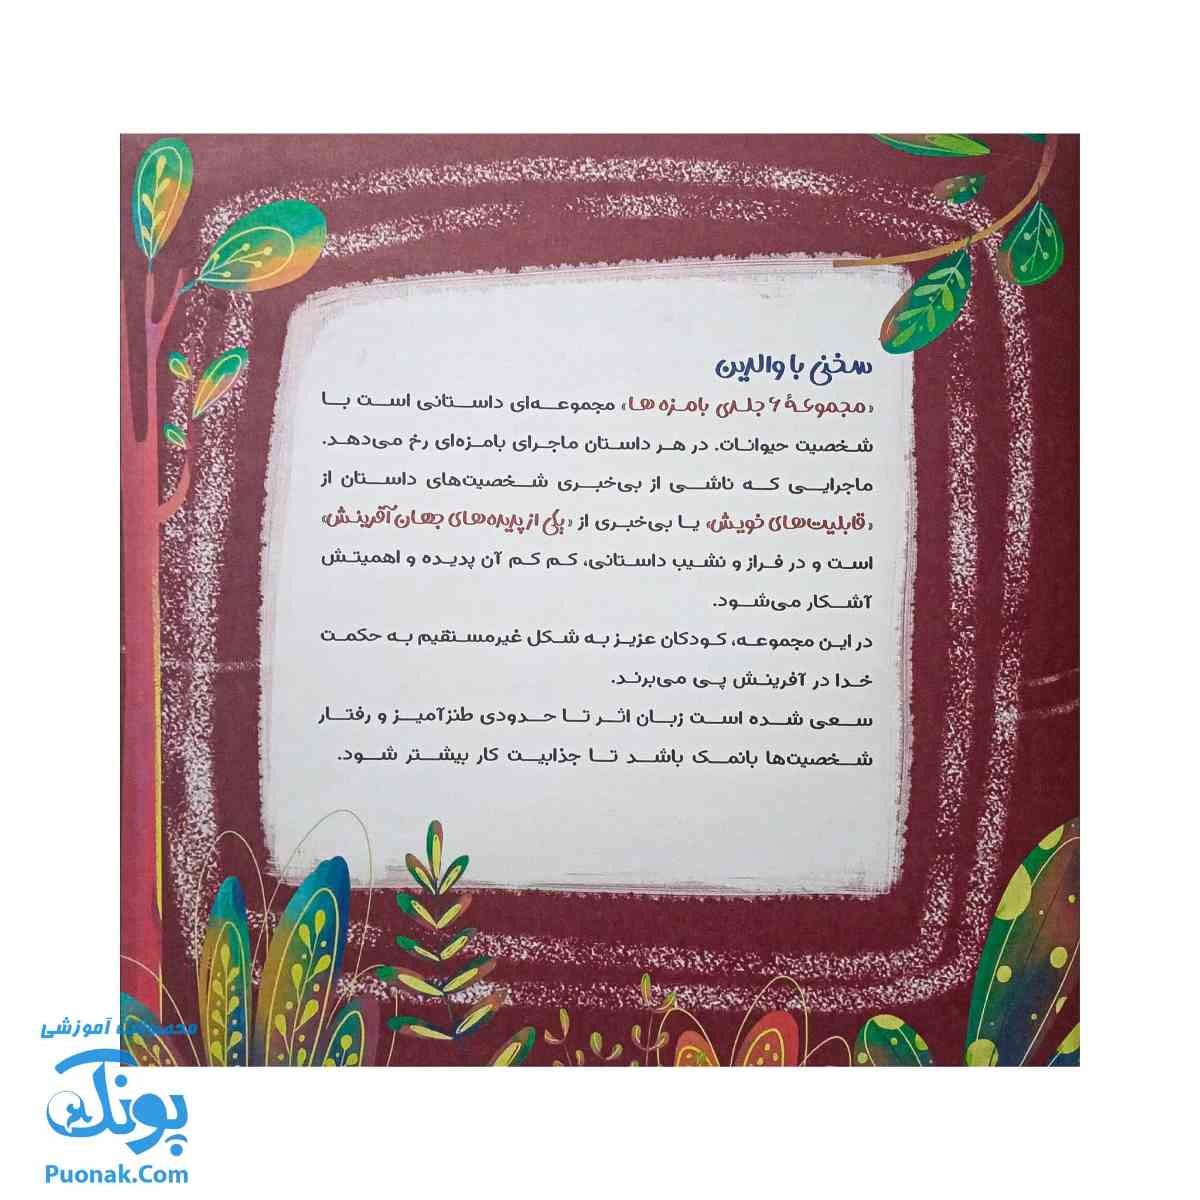 سخنی با والدین
«مجموعهٔ ۶ جلدی بامزه ها» مجموعه‌ای داستانی است با
شخصیت حیوانات. در هر داستان ماجرای بامزه‌ای رخ می‌دهد.
ماجرایی که ناشی از بی‌خبری شخصیت‌های داستان از
«قابلیت‌های خویش» یا بی‌خبری از «یکی از پدیده‌های جهان آفرینش»
است و در فراز و نشیب داستانی، کم کم آن پدیده و اهمیتش
آشکار می‌شود.
در این مجموعه، کودکان عزیز به شکل غیرمستقیم به حکمت
خدا در آفرینش پی می‌برند.
سعی شده است زبان اثر تا حدودی طنزآمیز و رفتار
شخصیت‌ها بانمک باشد تا جذابیت کار بیشتر شود.
محصولات آموزشی
پونک
Puonak.Com